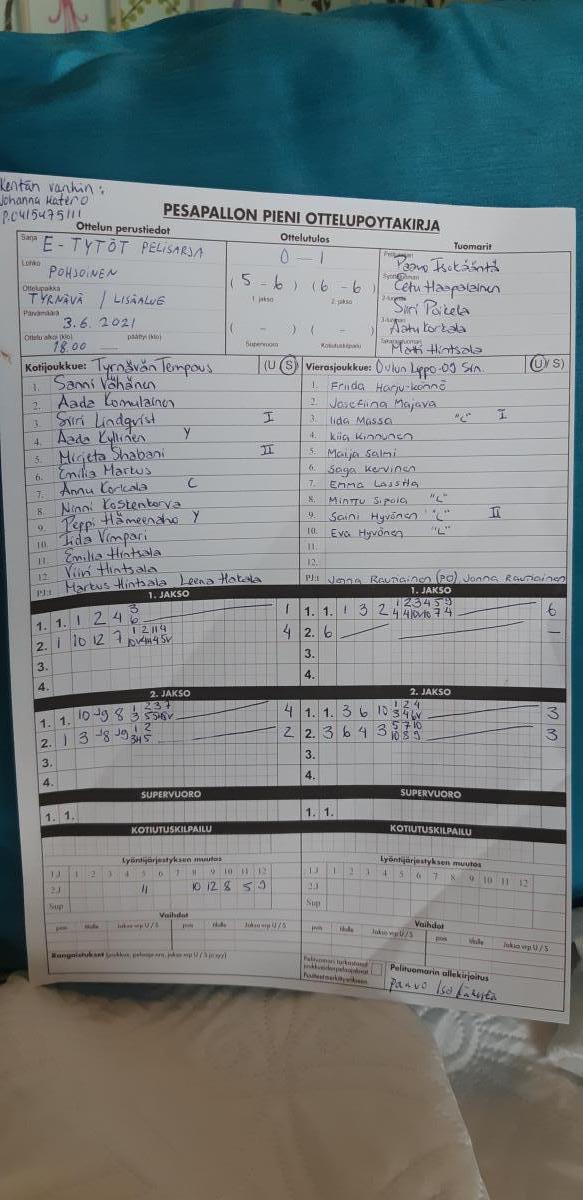 Kentän vanhin:
Johanna Katero
P.0415475111
PESÄPALLON PIENI OTTELUPÖYTÄKIRJA
Ottelun perustiedot Ottelutulos Tuomarit
Sarja E-TYTÖT PELISARJA 0-1 Paavo Isokääntä
Lohko POHJOINEN (5-6) (6-6) Eetu Haapalainen
1. jakso 2. jakso
Ottelupaikka TYRNÄVÄ / LISÄALUE Siiri Poikela
Päivämäärä 3.6. 2021 ( - ) ( - ) Aatu Korkala
Ottelu alkoi (klo) 18.00 päättyi (klo) Supervuoro Kotiutuskilpailu Matti Hintsala
Kotijoukkue: Tyrnävän Tempaus (U/S) Vierasjoukkue: Oulun Lippo-09 Sin. (U/S)
1. Sanni Vähänen 1. Friida Harju-könnö
2. Aada Komulainen 2. Josefiina Majava
3. Siiri Lindqvist I 3. Iida Massa "L" I
4. Aada Kyllinen Y 4. Kiia Kinnunen
5. Mirjeta Shabani II 5. Maija Salmi
6. Emilia Markus 6. Saga Kervinen
7. Annu Korkala C 7. Emma Lassila
8. Ninni Kostenkorva 8. Minttu Sipola "L"
9. Peppi Hämeenaho Y 9. Saini Hyvönen "L" II
10. Iida Vimpari 10. Eva Hyvönen "L"
11. Emilia Hintsala 11.
12. Viivi Hintsala 12.
PJ:t Markus Hintsala Leena Hakala PJ:t Jonna Rautiainen (PO) Jonna Rautiainen
1. JAKSO 1. JAKSO
1. 1. 1 2 4 3 6 1 1. 1. 1 3 2 6
2. 1 10 12 7 4 2. 6 -
3. 3.
4. 4.
2. JAKSO 2. JAKSO
1. 1. 10 9 8 4 1. 1. 3 6 10 3
2. 1 3 8 9 2 2. 3 6 4 3 3
3. 3.
4. 4.
SUPERVUORO SUPERVUORO
1. 1. 1. 1.
KOTIUTUSKILPAILU KOTIUTUSKILPAILU
Lyöntijärjestyksen muutos Lyöntijärjestyksen muutos
1.J 1 2 3 4 5 6 7 8 9 10 11 12 1.J 1 2 3 4 5 6 7 8 9 10 11 12
2.J 11 10 12 8 5 9 2.J
Sup Sup
Vaihdot Vaihdot
pois tilalle Jakso vrp U / S pois tilalle Jakso vrp U / S pois tilalle Jakso vrp U / S pois tilalle Jakso vrp U / S
Rangaistukset (joukkue, pelaaja nro, jakso vrp U / S ja syy) Pelituomarin allekirjoitus
Paavo Isokääntä